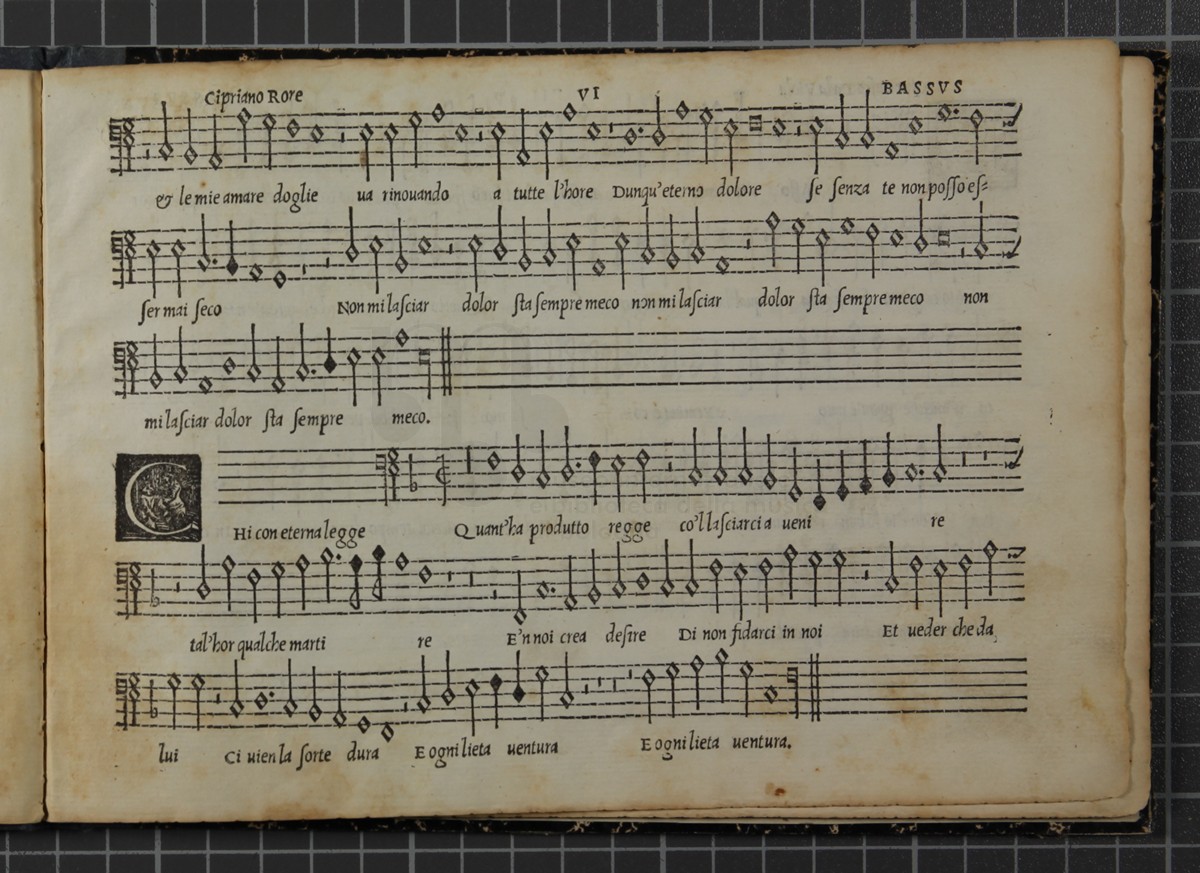 Cipriano Rore VI BASSVS
& le mie amare doglie ua rinouando a tutte l'hore Dunqu'eterno dolore se senza te non posso es=
ser mai seco Non mi lasciar dolor sta sempre meco non mi lasciar dolor sta sempre meco non
mi lasciar dolor sta sempre meco.
CHi con eterna legge Quant'ha produtto regge co'l lasciarci a ueni re
tal'hor qualche marti re E'n noi crea desire Di non fidarci in noi Et ueder che da
lui Ci uien la sorte dura E ogni lieta uentura E ogni lieta uentura.